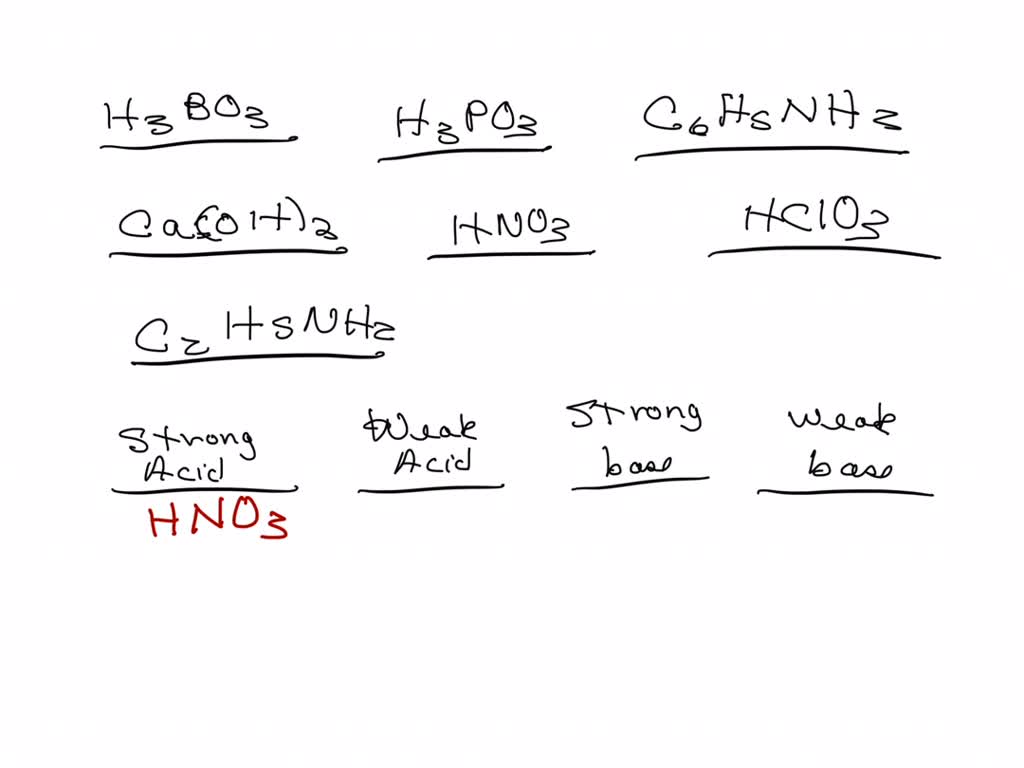 H3BO3 H3PO3 C6H5NH2
Ca(OH)2 HNO3 HClO3
C2H5NH2
Strong Acid Weak Acid Strong base Weak base
HNO3